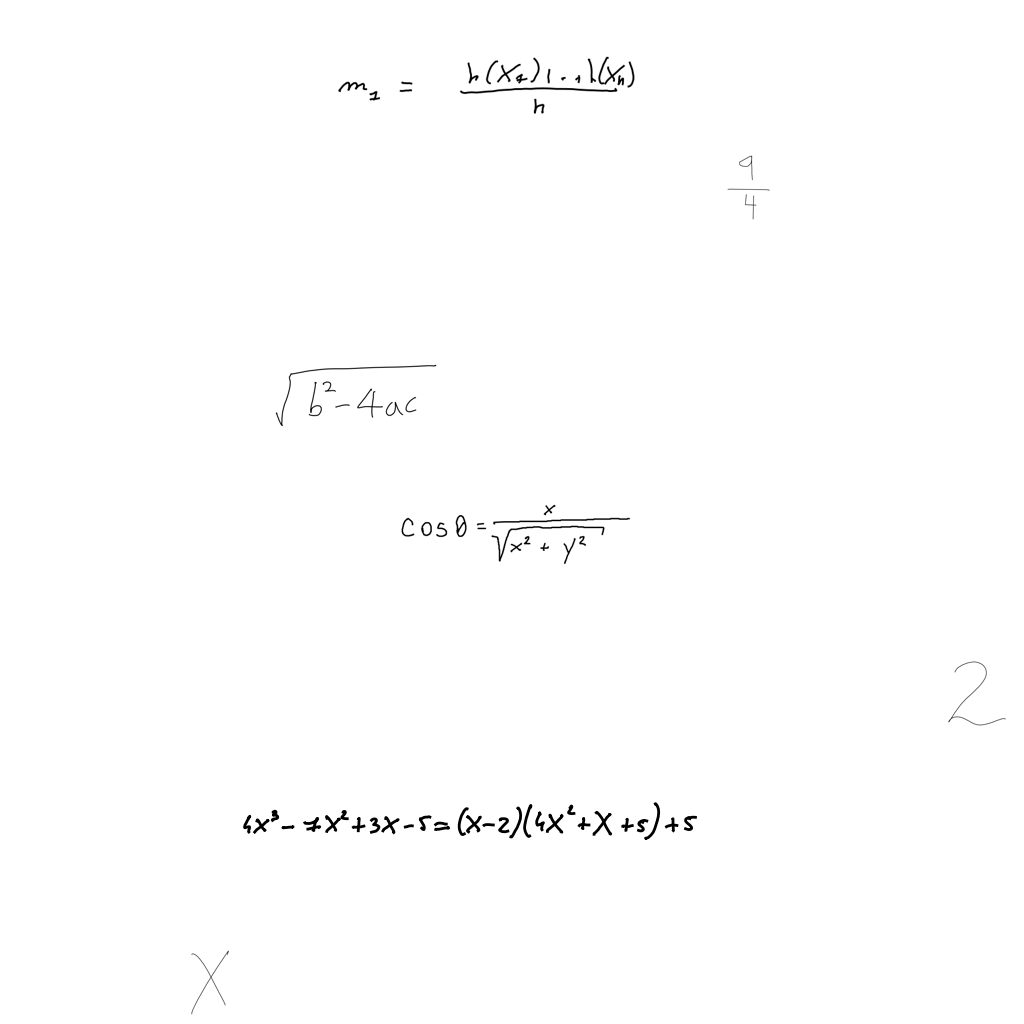 m₁ = h(x₁), .., h(xₙ) / n
9/4
√(b² - 4ac)
cos θ = x / √(x² + y²)
2
4x³ - 7x² + 3x - 5 = (x - 2)(4x² + x + 5) + 5
X